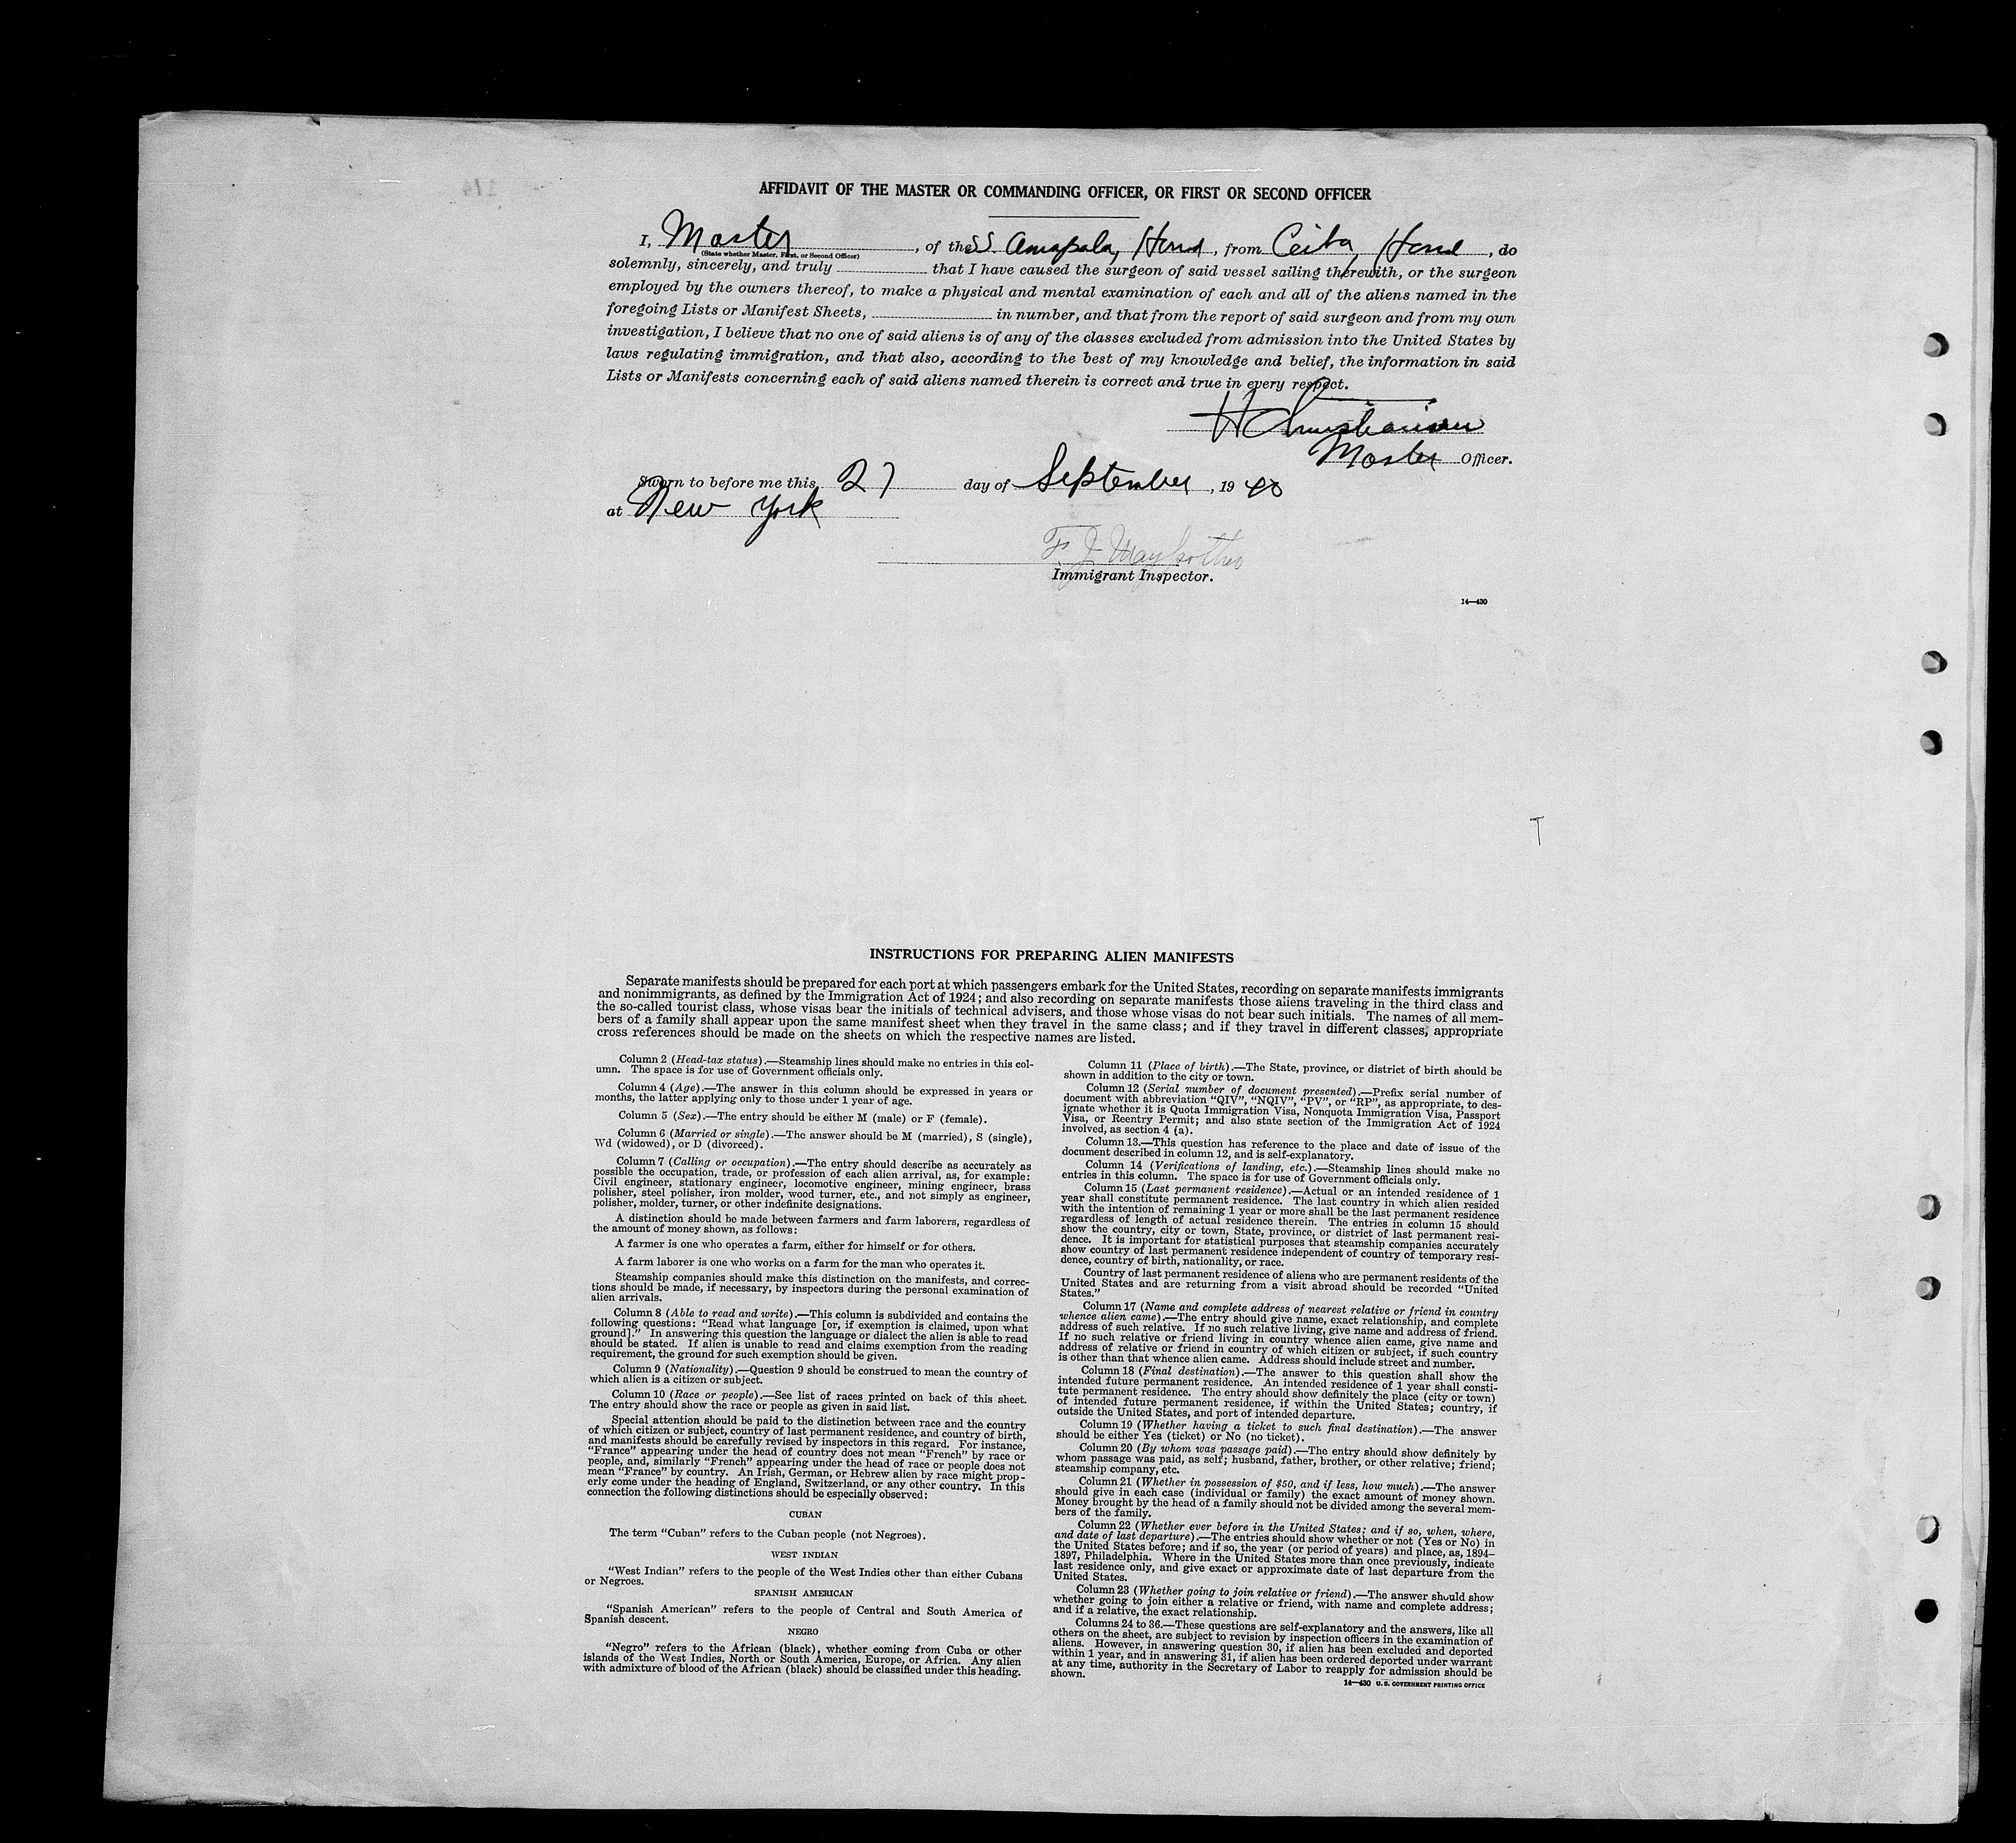 AFFIDAVIT OF THE MASTER OR COMMANDING OFFICER, OR FIRST OR SECOND OFFICER
I, Master, of the SS. Amapala, Hond, from Ceiba, Hond, do
(State whether Master, First, or Second Officer)
solemnly, sincerely, and truly that I have caused the surgeon of said vessel sailing therewith, or the surgeon
employed by the owners thereof, to make a physical and mental examination of each and all of the aliens named in the
foregoing Lists or Manifest Sheets, in number, and that from the report of said surgeon and from my own
investigation, I believe that no one of said aliens is of any of the classes excluded from admission into the United States by
laws regulating immigration, and that also, according to the best of my knowledge and belief, the information in said
Lists or Manifests concerning each of said aliens named therein is correct and true in every respect.
H Christiansen
Master Officer.
Sworn to before me this 27 day of September, 1940
at New York
F. J.
Immigrant Inspector.
14—430
INSTRUCTIONS FOR PREPARING ALIEN MANIFESTS
Separate manifests should be prepared for each port at which passengers embark for the United States, recording on separate manifests immigrants
and nonimmigrants, as defined by the Immigration Act of 1924; and also recording on separate manifests those aliens traveling in the third class and
the so-called tourist class, whose visas bear the initials of technical advisers, and those whose visas do not bear such initials. The names of all mem-
bers of a family shall appear upon the same manifest sheet when they travel in the same class; and if they travel in different classes, appropriate
cross references should be made on the sheets on which the respective names are listed.
Column 2 (Head-tax status).—Steamship lines should make no entries in this col-
umn. The space is for use of Government officials only.
Column 4 (Age).—The answer in this column should be expressed in years or
months, the latter applying only to those under 1 year of age.
Column 5 (Sex).—The entry should be either M (male) or F (female).
Column 6 (Married or single).—The answer should be M (married), S (single),
Wd (widowed), or D (divorced).
Column 7 (Calling or occupation).—The entry should describe as accurately as
possible the occupation, trade, or profession of each alien arrival, as, for example:
Civil engineer, stationary engineer, locomotive engineer, mining engineer, brass
polisher, steel polisher, iron molder, wood turner, etc., and not simply as engineer,
polisher, molder, turner, or other indefinite designations.
A distinction should be made between farmers and farm laborers, regardless of
the amount of money shown, as follows:
A farmer is one who operates a farm, either for himself or for others.
A farm laborer is one who works on a farm for the man who operates it.
Steamship companies should make this distinction on the manifests, and correc-
tions should be made, if necessary, by inspectors during the personal examination of
alien arrivals.
Column 8 (Able to read and write).—This column is subdivided and contains the
following questions: “Read what language [or, if exemption is claimed, upon what
ground].” In answering this question the language or dialect the alien is able to read
should be stated. If alien is unable to read and claims exemption from the reading
requirement, the ground for such exemption should be given.
Column 9 (Nationality).—Question 9 should be construed to mean the country of
which alien is a citizen or subject.
Column 10 (Race or people).—See list of races printed on back of this sheet.
The entry should show the race or people as given in said list.
Special attention should be paid to the distinction between race and the country
of which citizen or subject, country of last permanent residence, and country of birth,
and manifests should be carefully revised by inspectors in this regard. For instance,
“France” appearing under the head of country does not mean “French” by race or
people, and, similarly “French” appearing under the head of race or people does not
mean “France” by country. An Irish, German, or Hebrew alien by race might prop-
erly come under the heading of England, Switzerland, or any other country. In this
connection the following distinctions should be especially observed:
CUBAN
The term “Cuban” refers to the Cuban people (not Negroes).
WEST INDIAN
“West Indian” refers to the people of the West Indies other than either Cubans
or Negroes.
SPANISH AMERICAN
“Spanish American” refers to the people of Central and South America of
Spanish descent.
NEGRO
“Negro” refers to the African (black), whether coming from Cuba or other
islands of the West Indies, North or South America, Europe, or Africa. Any alien
with admixture of blood of the African (black) should be classified under this heading.
Column 11 (Place of birth).—The State, province, or district of birth should be
shown in addition to the city or town.
Column 12 (Serial number of document presented).—Prefix serial number of
document with abbreviation “QIV”, “NQIV”, “PV”, or “RP”, as appropriate, to des-
ignate whether it is Quota Immigration Visa, Nonquota Immigration Visa, Passport
Visa, or Reentry Permit; and also state section of the Immigration Act of 1924
involved, as section 4 (a).
Column 13.—This question has reference to the place and date of issue of the
document described in column 12, and is self-explanatory.
Column 14 (Verifications of landing, etc.).—Steamship lines should make no
entries in this column. The space is for use of Government officials only.
Column 15 (Last permanent residence).—Actual or an intended residence of 1
year shall constitute permanent residence. The last country in which alien resided
with the intention of remaining 1 year or more shall be the last permanent residence
regardless of length of actual residence therein. The entries in column 15 should
show the country, city or town, State, province, or district of last permanent resi-
dence. It is important for statistical purposes that steamship companies accurately
show country of last permanent residence independent of country of temporary resi-
dence, country of birth, nationality, or race.
Country of last permanent residence of aliens who are permanent residents of the
United States and are returning from a visit abroad should be recorded “United
States.”
Column 17 (Name and complete address of nearest relative or friend in country
whence alien came).—The entry should give name, exact relationship, and complete
address of such relative. If no such relative living, give name and address of friend.
If no such relative or friend living in country whence alien came, give name and
address of relative or friend in country of which citizen or subject, if such country
is other than that whence alien came. Address should include street and number.
Column 18 (Final destination).—The answer to this question shall show the
intended future permanent residence. An intended residence of 1 year shall consti-
tute permanent residence. The entry should show definitely the place (city or town)
of intended future permanent residence, if within the United States; country, if
outside the United States, and port of intended departure.
Column 19 (Whether having a ticket to such final destination).—The answer
should be either Yes (ticket) or No (no ticket).
Column 20 (By whom was passage paid).—The entry should show definitely by
whom passage was paid, as self; husband, father, brother, or other relative; friend;
steamship company, etc.
Column 21 (Whether in possession of $50, and if less, how much).—The answer
should give in each case (individual or family) the exact amount of money shown.
Money brought by the head of a family should not be divided among the several mem-
bers of the family.
Column 22 (Whether ever before in the United States; and if so, when, where,
and date of last departure).—The entries should show whether or not (Yes or No) in
the United States before; and if so, the year (or period of years) and place, as, 1894–
1897, Philadelphia. Where in the United States more than once previously, indicate
last residence only, and give exact or approximate date of last departure from the
United States.
Column 23 (Whether going to join relative or friend).—The answer should show
whether going to join either a relative or friend, with name and complete address;
and if a relative, the exact relationship.
Columns 24 to 36.—These questions are self-explanatory and the answers, like all
others on the sheet, are subject to revision by inspection officers in the examination of
aliens. However, in answering question 30, if alien has been excluded and deported
within 1 year, and in answering 31, if alien has been ordered deported under warrant
at any time, authority in the Secretary of Labor to reapply for admission should be
shown.
14—430 U. S. GOVERNMENT PRINTING OFFICE